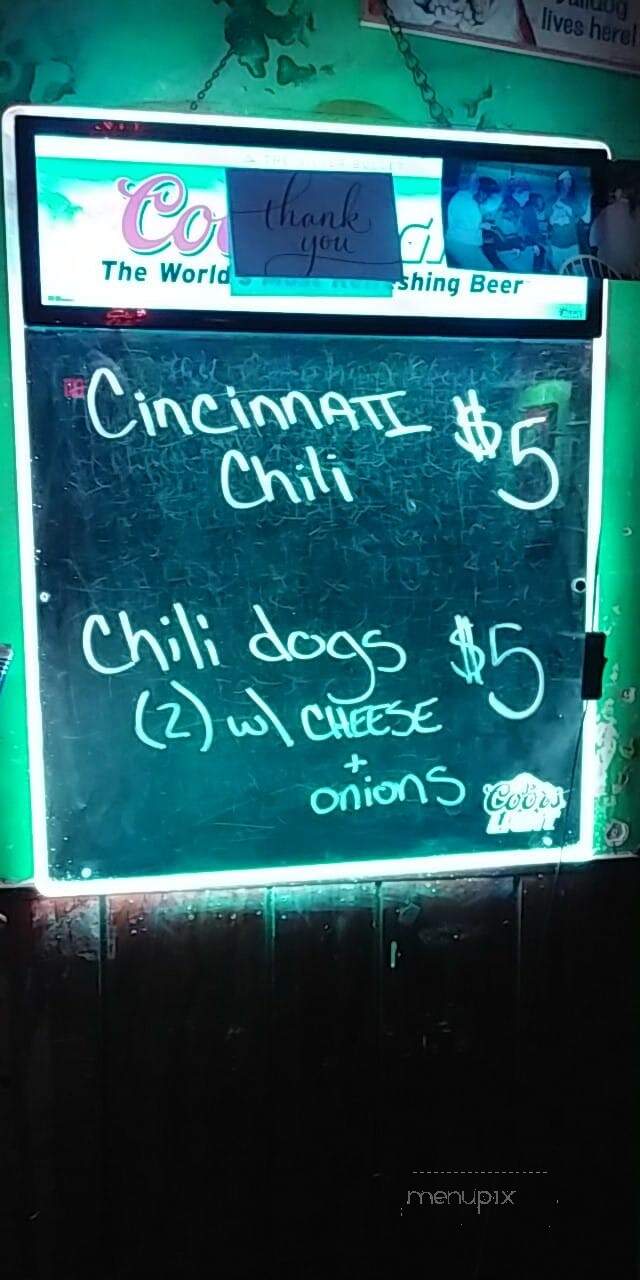 lives here!
Co
thank
you
The World's
shing Beer
Cincinnati $5
Chili
Chili dogs $5
(2) w/ CHEESE
+
onions
Coors
LIGHT
menupix